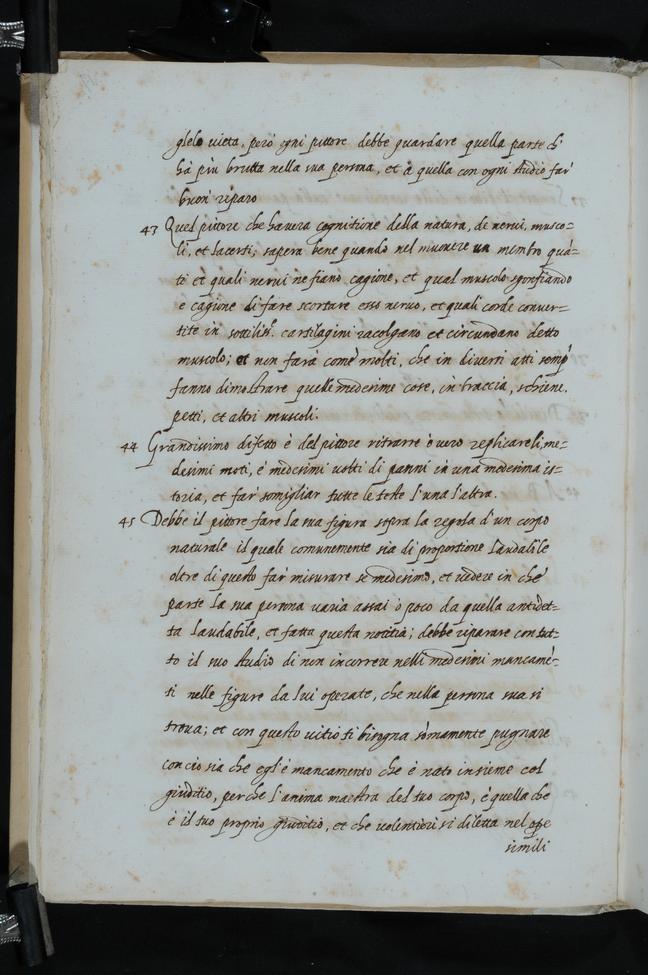 glelo uieta, però ogni pittore debbe guardare quella parte ch'
hà più brutta nella sua persona, et a quella con ogni studio far'
buon' riparo
43 Quel pittore che hauera cognitione della natura, de nerui, musco-
li, et lacerti; sapera bene quando nel muouere un membro quā-
ti et quali nerui ne fiano cagione, et qual muscolo sgonfiando
è cagione di fare scortare esso neruo, et quali corde conuer-
tite in sottiliss.e cartilagini racolgano et circundano detto
muscolo; et non farà come molti, che in diuersi atti semp'
fanno dimostrare quelle medesime cose, in braccia, schiene,
petti, et altri muscoli.
44 Grandissimo difetto è del pittore ritrarre ò uero replicare li me-
desimi moti, e medesimi uolti di panni in una medesima is-
toria, et far' somigliar tutte le teste l'una l'altra.
45 Debbe il pittore fare la sua figura sopra la regola d'un corpo
naturale il quale comunemente sia di proportione laudabile
oltre di questo far' misurare se medesimo, et uedere in che'
parte la sua persona varia assai ò poco da quella antidet-
ta laudabile, et fatta questa notitia; debbe riparare con tut-
to il suo studio di non incorrere nelli medesimi mancamē-
ti nelle figure da lui operate, che nella persona sua si
troua; et con questo uitio ti bisogna sōmamente pugnare
concio sia che egl'è mancamento che è nato insieme col
giuditio, perche l'anima maestra del tuo corpo, è quella che
è il tuo proprio giuditio, et che uolentieri si diletta nel op̄e
simili